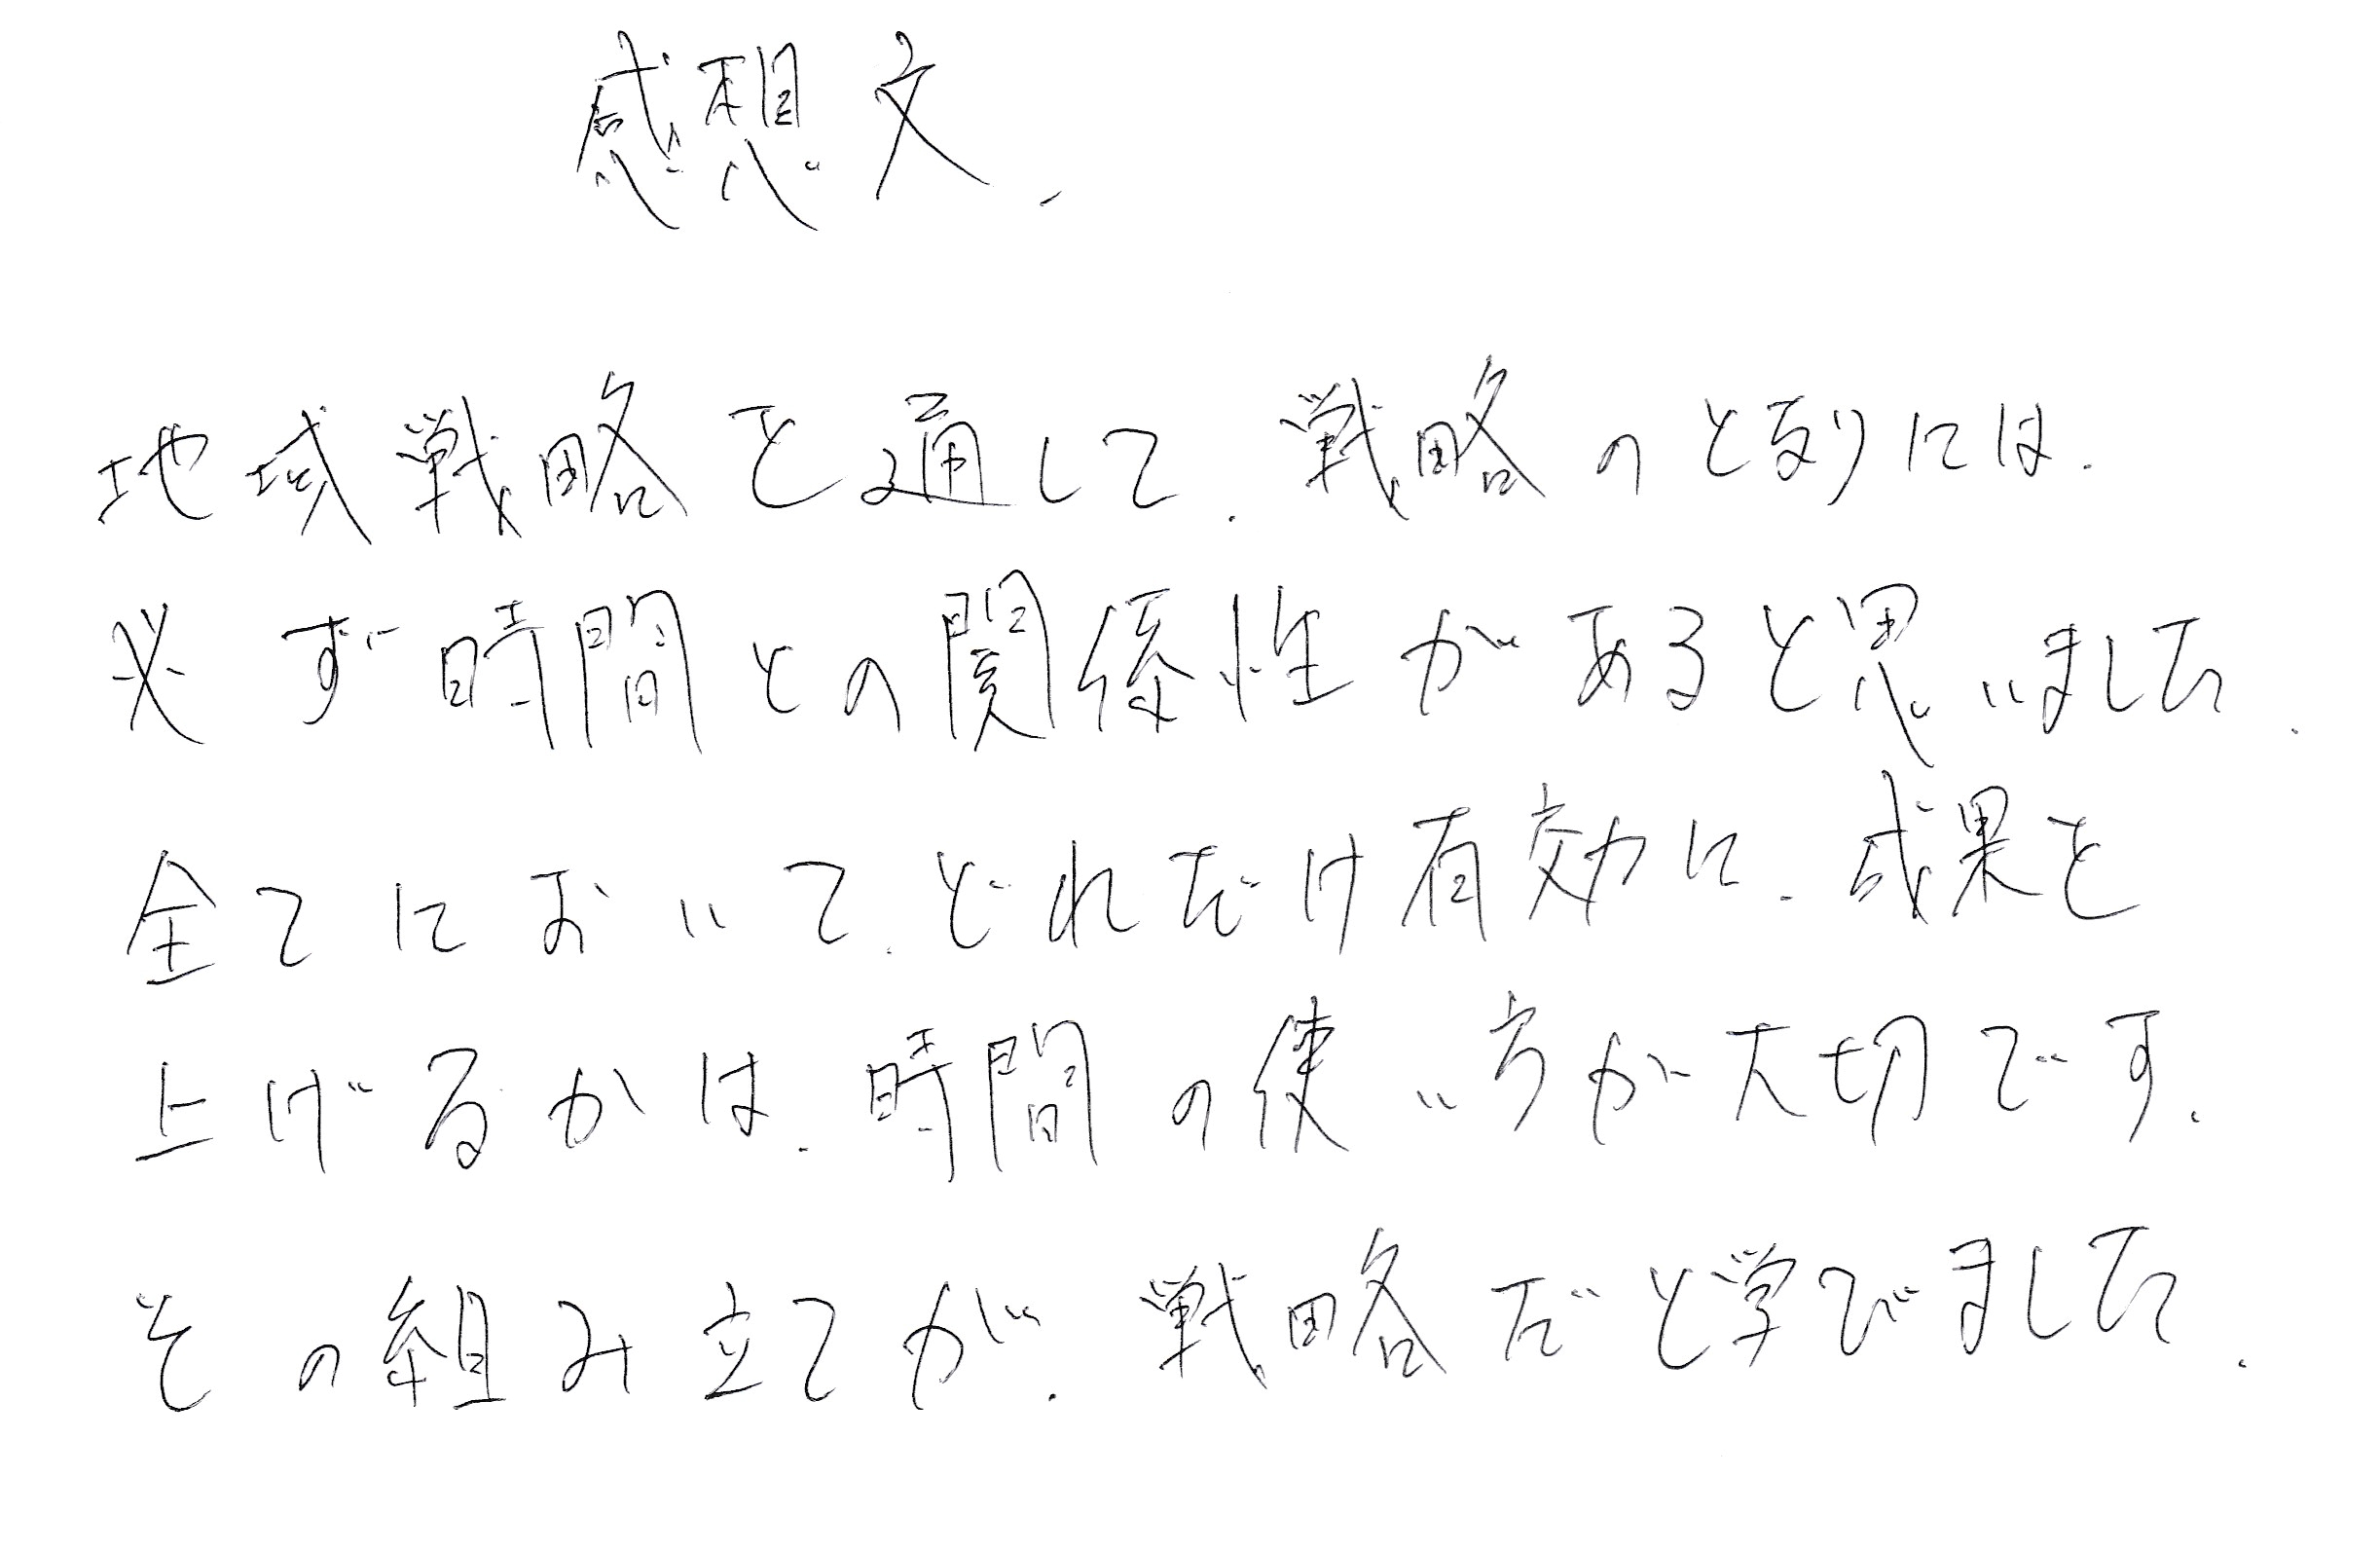 感想文.
地域戦略を通して.戦略のとなりには.
必ず時間との関係性があると思いました.
全てにおいて.どれだけ有効に.成果を
上げるかは.時間の使い方が大切です.
その組み立てが.戦略だと学びました.